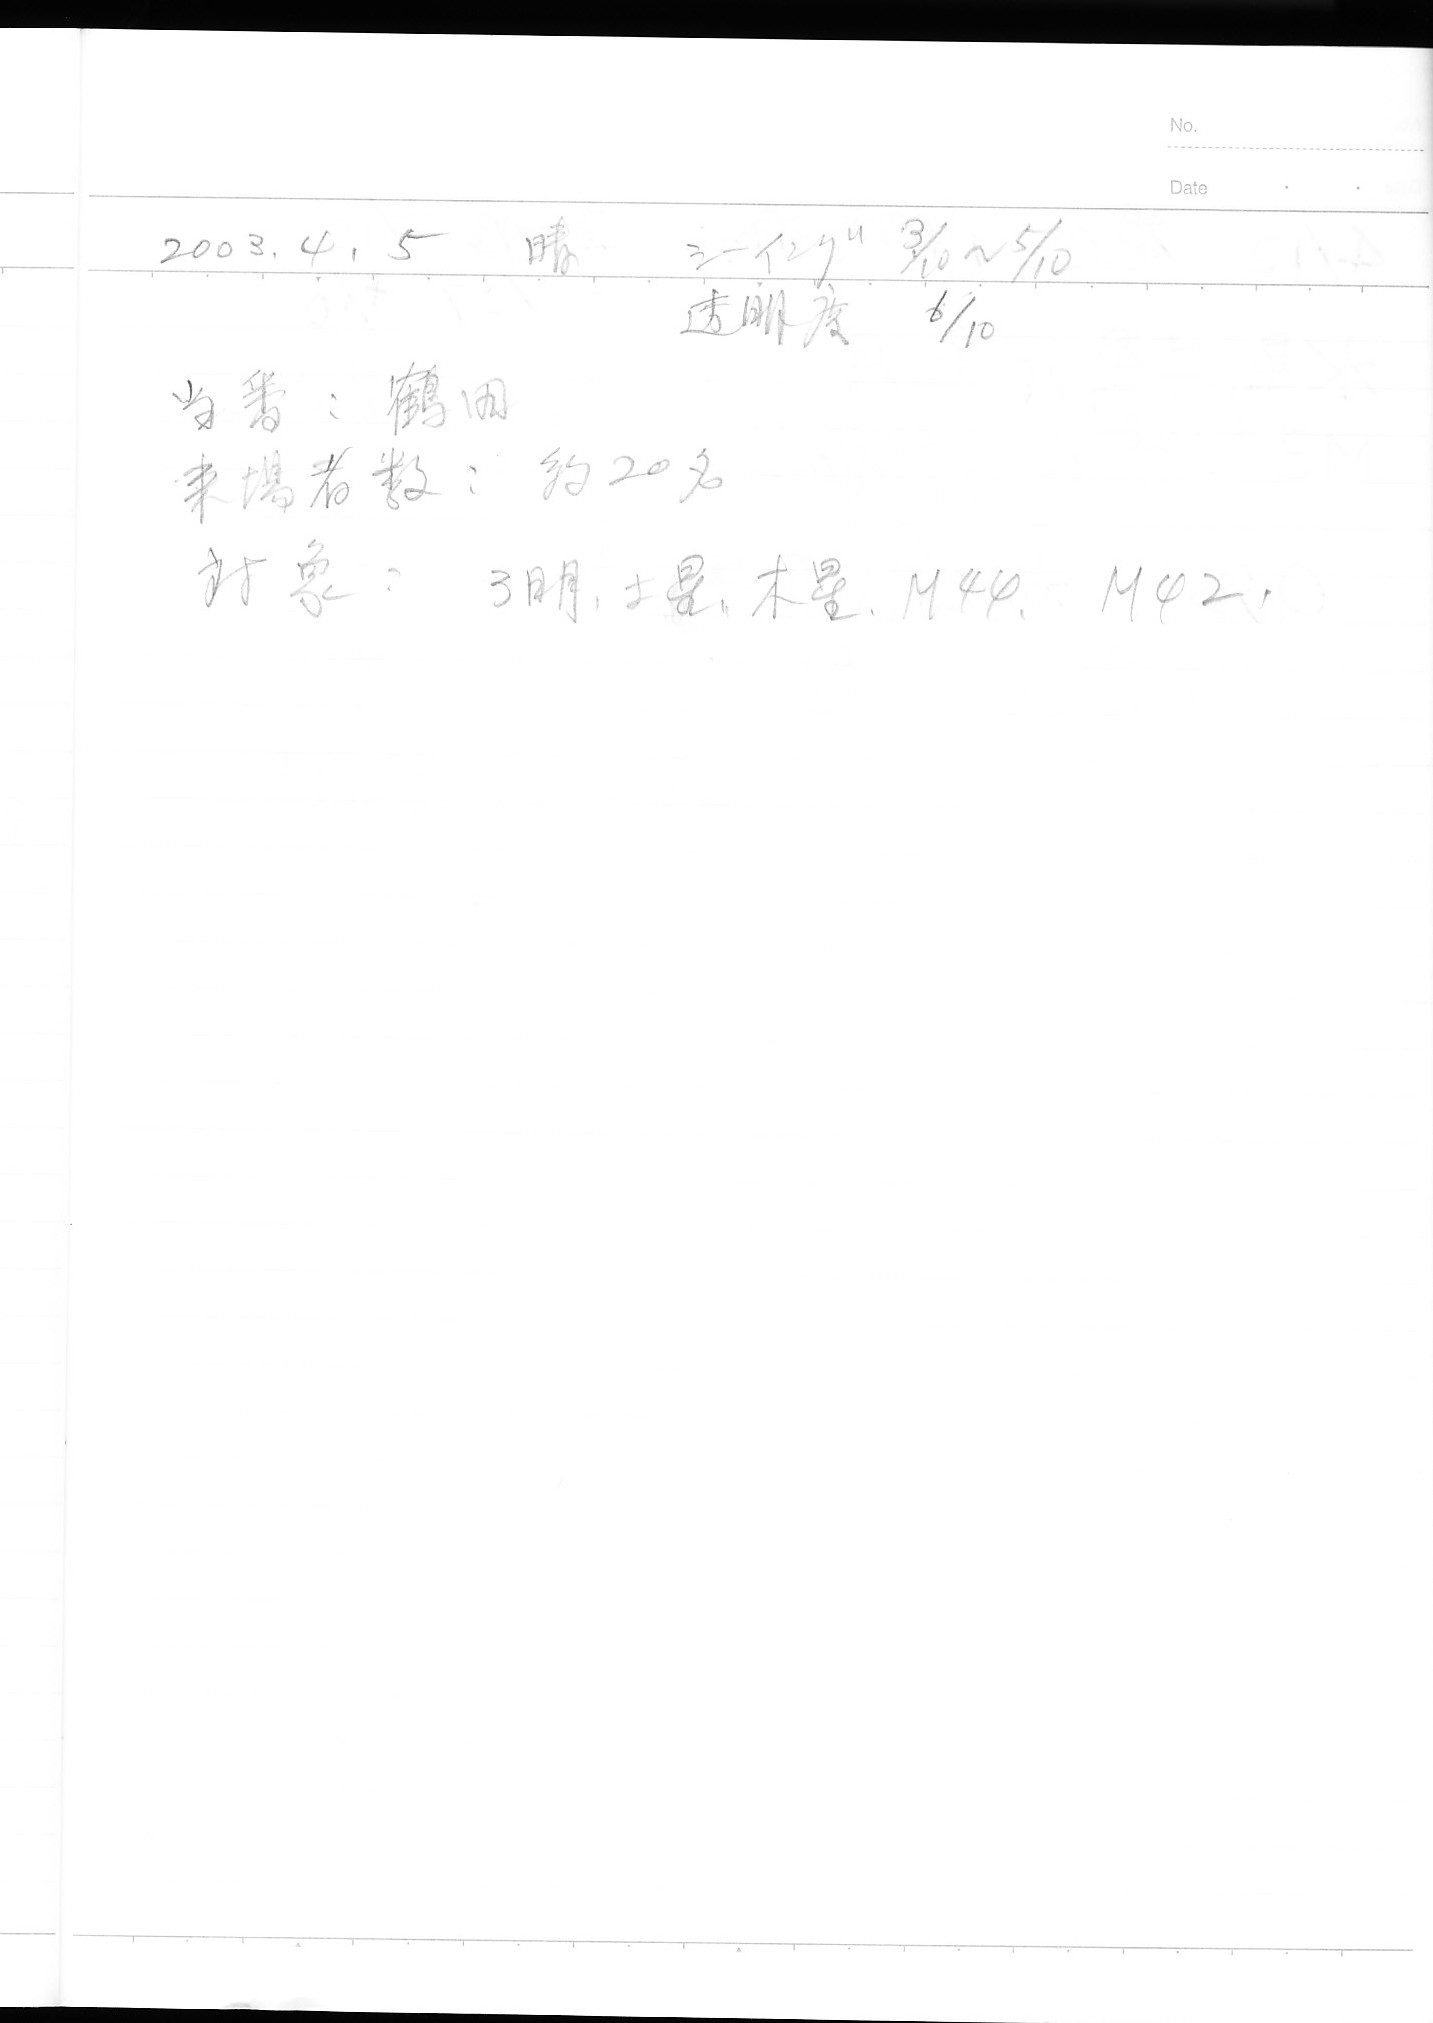 No.
Date
2003.4.5 晴 シーイング 3/10〜5/10
透明度 6/10
当番：鶴田
来場者数：約20名
対象：3日月、土星、木星、M44、M42、